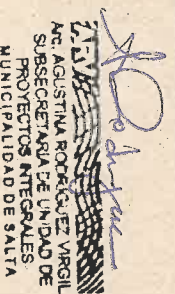 Arq. AGUSTINA RODRIGUEZ VIRGIL
SUBSECRETARIA DE UNIDAD DE
PROYECTOS INTEGRALES
MUNICIPALIDAD DE SALTA